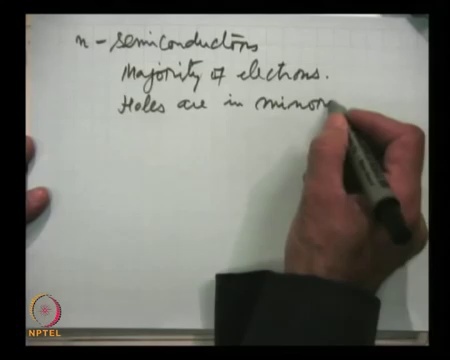 n - semiconductors
Majority of electrons.
Holes are in minor
NPTEL